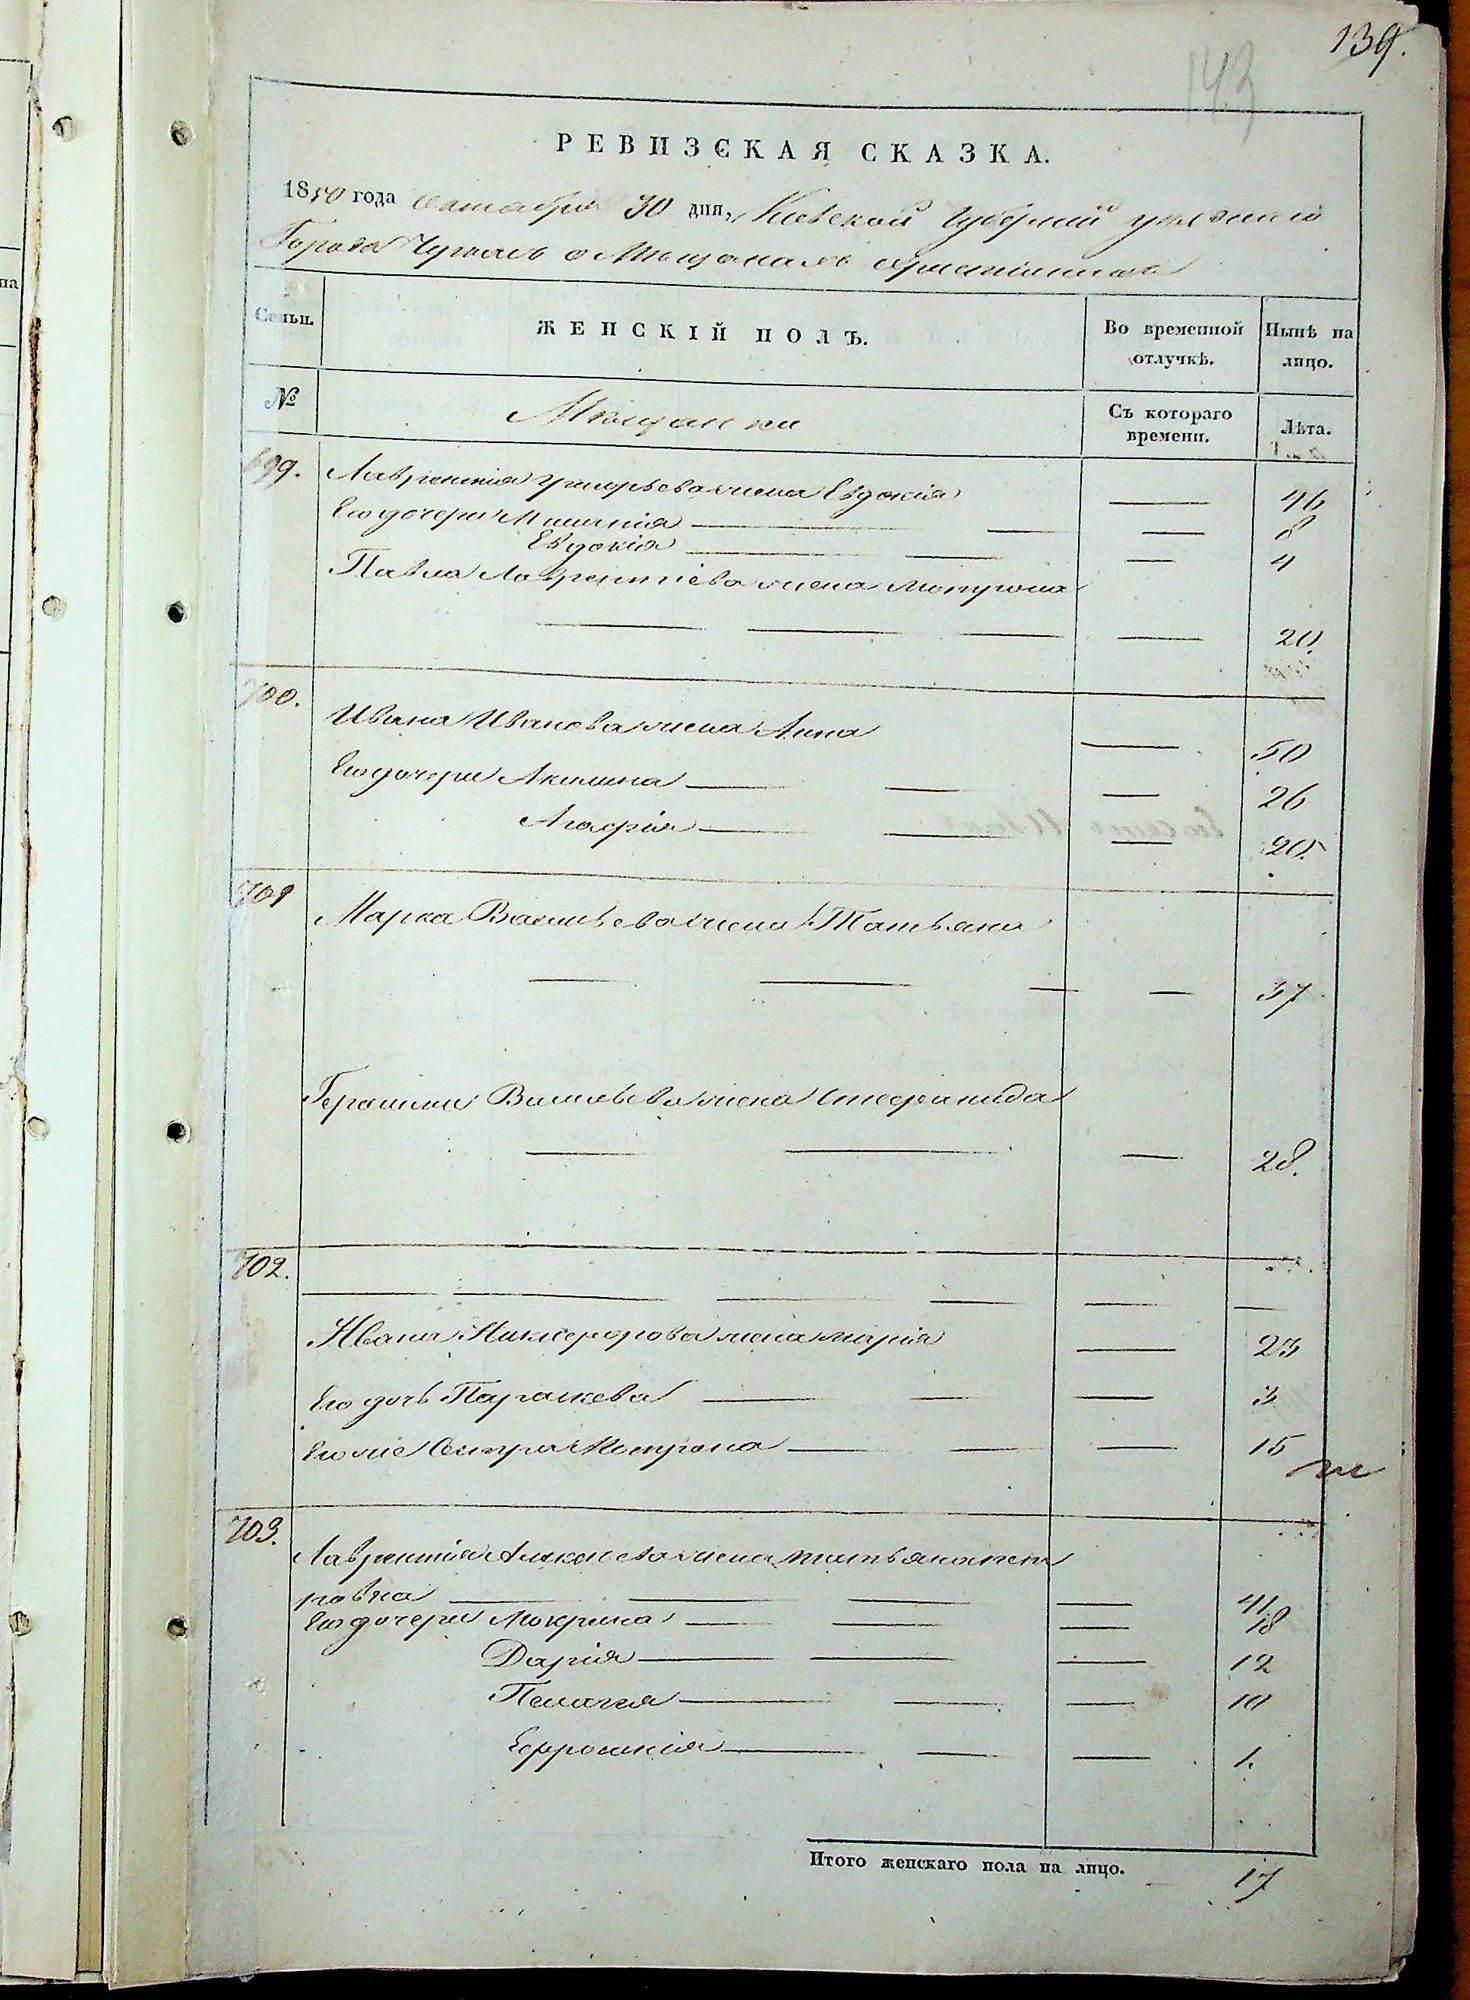 139.
143
РЕВИЗСКАЯ СКАЗКА.
1850 года Октября 30 дня, Кіевской Губерніи уезднаго
Города о Мещанахъ христіянахъ
Семьи.
ЖЕНСКІЙ ПОЛЪ.
Во временной отлучкѣ.
Нынѣ на лицо.
№
Мещанки
Съ котораго времени.
Лѣта.
699. Лаврентія Григорьева жена Евдокія — 46
Его дочери — 8
Евдокія — 4
Павла Лаврентіева жена Мотрона
— 20.
700. Ивана Иванова жена Анна — 50
Его дочери Акилина — 26
Агафія — 20.
701 Марка Васильева жена Татьяна
— 37
Герасима Васильева жена Стефанида
— 28.
702.
Ивана Никифорова жена Марія — 23
Его дочь Параскева — 3
Его же Сестра Мотрона — 15
703. Лаврентія Алексеева жена Татьяна Пет
ровна — 41
Его дочери Мокрина — 18
Дарія — 12
Пелагея — 10
Ефросинія — 1.
Итого женскаго пола на лицо. 17